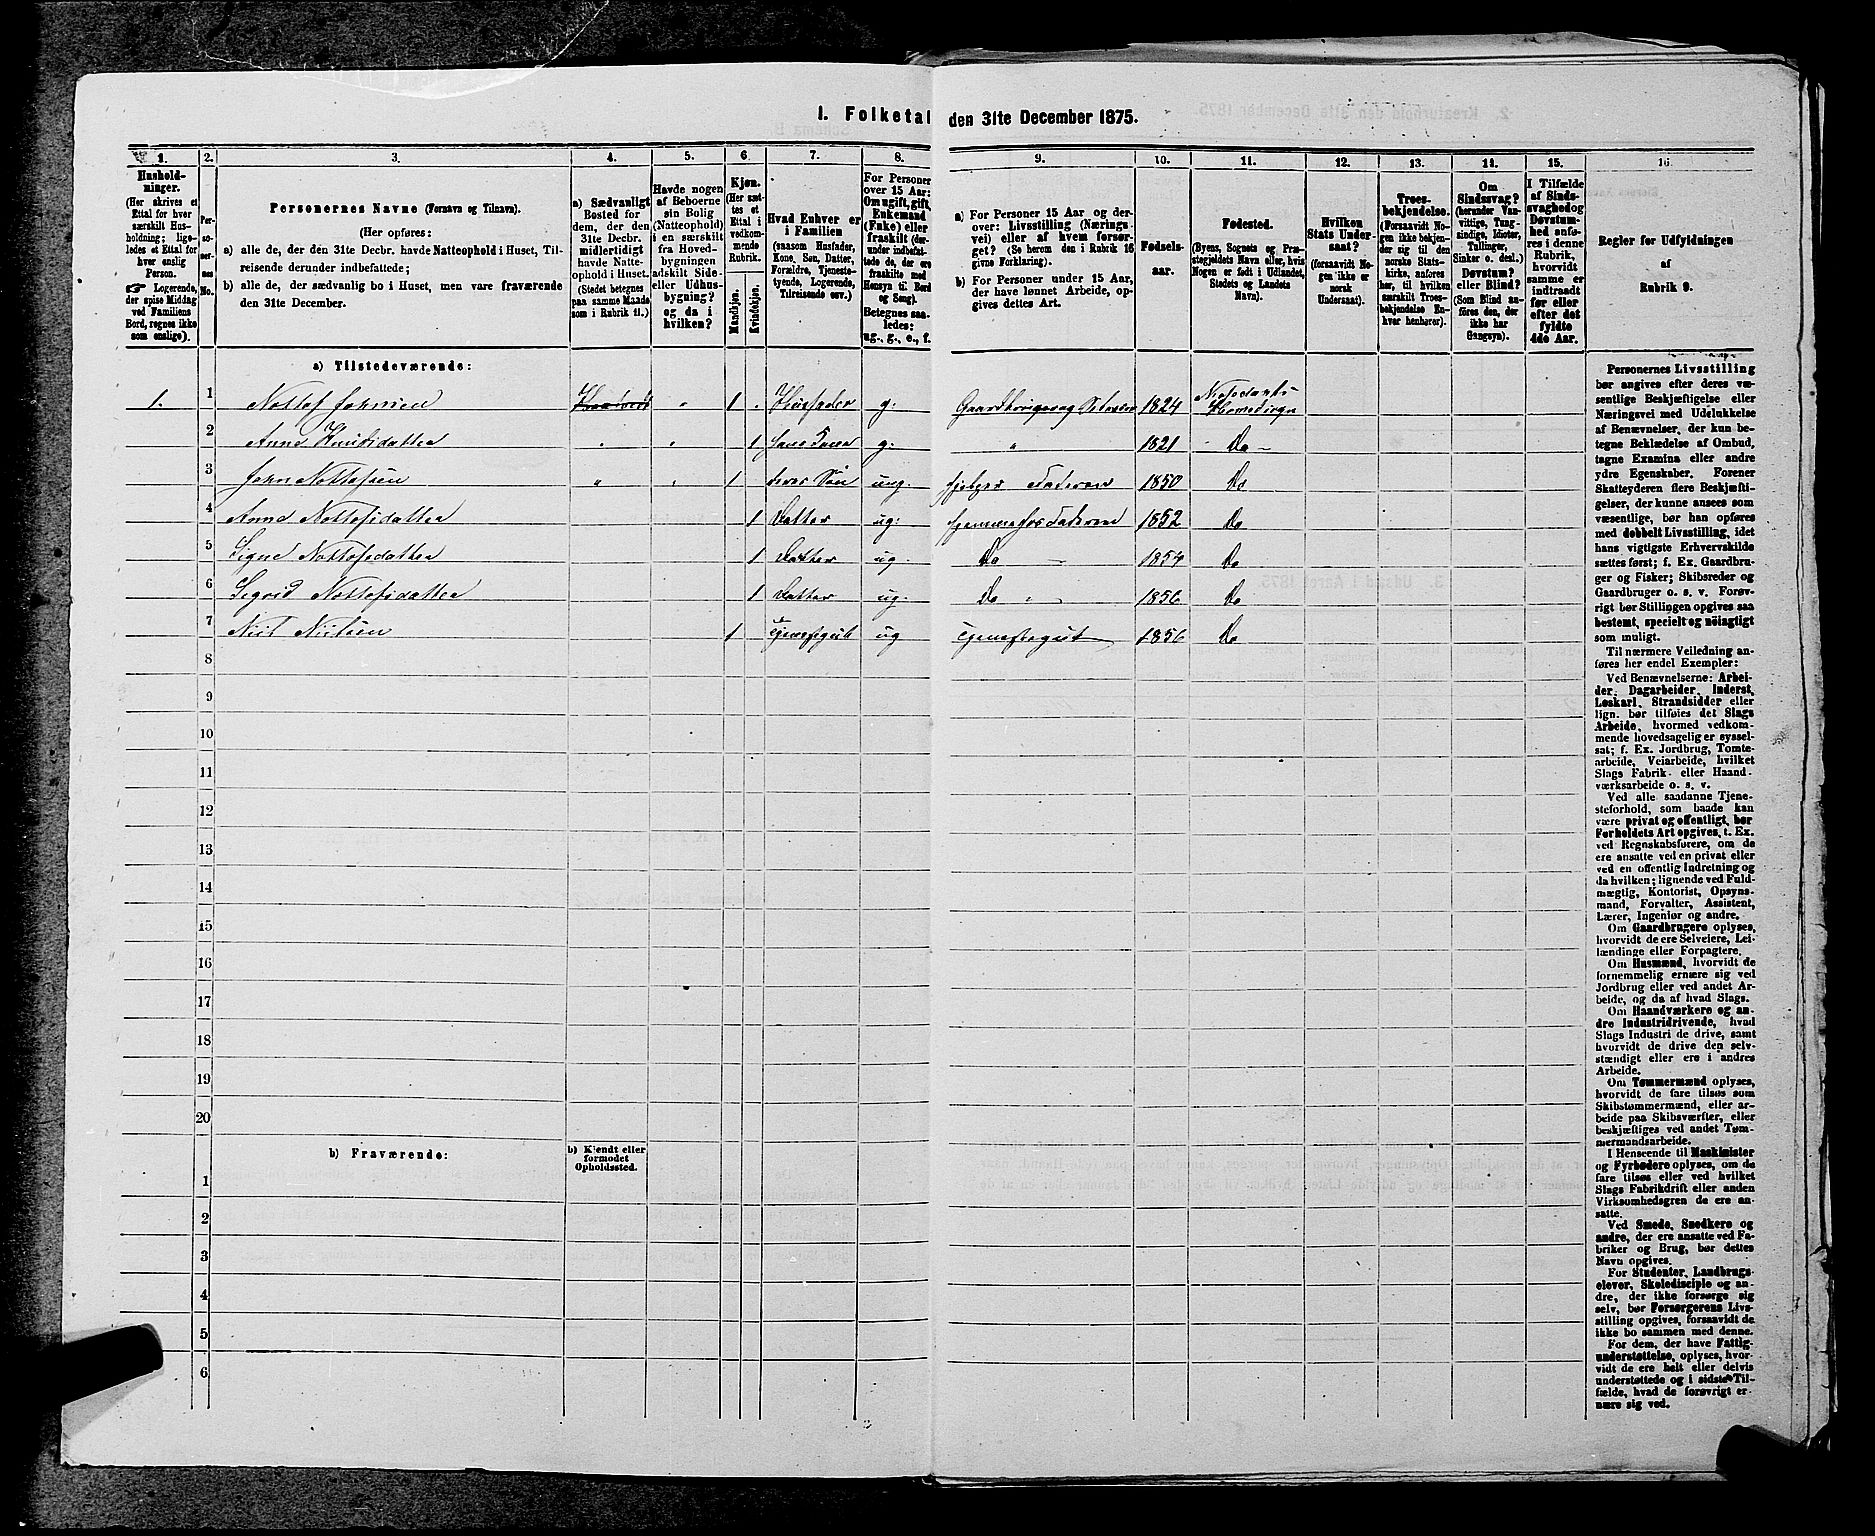 1. Folketal den 31te December 1875.
1. 2. 3. 4. 5. 6. 7. 8. 9. 10. 11. 12. 13. 14. 15. 16.
Hushold-
ninger.
(Her skrives et
Ettal for hver
særskilt Hus-
holdning; lige-
ledes et Ettal for
hver enslig
Person.
☞ Logerende,
der spise Middag
ved Familiens
Bord, regnes ikke
som enslige).
Per-
so-
ner-
nes
No.
Personernes Navne (Fornavn og Tilnavn).
(Her opføres:
a) alle de, der den 31te Decbr. havde Natteophold i Huset, Til-
reisende derunder indbefattede;
b) alle de, der sædvanlig bo i Huset, men vare fraværende
den 31te December.
a) Sædvanligt
Bosted for
dem, der den
31te Decbr.
midlertidigt
havde Natte-
ophold i Huset.
(Stedet betegnes
paa samme Maade
som i Rubrik 11.)
Havde nogen
af Beboerne
sin Bolig
(Natteophold)
i en særskilt
fra Hoved-
bygningen
adskilt Side-
eller Udhus-
bygning?
og da i
hvilken?
Kjøn.
(Her sæt-
tes et
Ettal i
vedkom-
mende
Rubrik.
Mandkjøn.
Kvindekjøn.
Hvad Enhver er
i Familien
(saasom Husfader,
Kone, Søn, Datter,
Forældre, Tjeneste-
tyende, Logerende,
Tilreisende osv.)
For Personer
over 15 Aar:
Om ugift, gift,
Enkemand
(Enke) eller
fraskilt (der-
under indbefat-
tede de, der ere
fraskilte med
Hensyn til Bord
og Seng).
Betegnes saa-
ledes:
ug., g., e., f.
a) For Personer 15 Aar og der-
over: Livsstilling (Nærings-
vei) eller af hvem forsør-
get? (Se herom den i Rubrik 16
givne Forklaring).
b) For Personer under 15 Aar,
der have lønnet Arbeide, op-
gives dettes Art.
Fødsels-
aar.
Fødested.
(Byens, Sognets og Præ-
stegjeldets Navn eller, hvis
Nogen er født i Udlandet,
Stedets og Landets
Navn).
Hvilken
Stats Under-
saat?
(forsaavidt No-
gen ikke er
norsk
Undersaat).
Troes-
bekjendelse.
(Forsaavidt No-
gen ikke bekjen-
der sig til den
norske Stats-
kirke, anføres
her, til hvilken
særskilt Troes-
bekjendelse En-
hver henhører).
Om
Sindssvag?
(herunder Van-
vittige, Tung-
sindige, Idioter,
Tullinger,
Sinker o. desl.)
Døvstum?
eller Blind?
(Som Blind an-
føres den, der
ikke har
Gangsyn).
I Tilfælde
af Sinds-
svaghed og
Døvstum-
hed anfø-
res i denne
Rubrik,
hvorvidt
samme er
indtraadt
før eller
efter det
fyldte
4de Aar.
Regler for Udfyldningen
af
Rubrik 9.
a) Tilstedeværende:
1. 1 Nottof Johnsen 1 Husfader g. 1824
2 Anne Knutsdatter 1 g. 1821 Do
3 John Nottofsen 1 Søn ug. 1850 Do
4 Anne Nottofsdatter 1 Datter ug. 1852 Do
5 Signe Nottofsdatter 1 Datter ug. Do 1854 Do
6 Sigrid Nottofsdatter 1 Datter ug. Do 1856 Do
7 Niels Nielsen 1 Tjenestegut ug Tjenestegut 1856 Do
8
9
10
11
12
13
14
15
16
17
18
19
20
b) Fraværende:
b) Kjendt eller
formodet
Opholdssted.
1
2
3
4
5
6
Personernes Livsstilling
bør angives efter deres væ-
sentlige Beskjæftigelse eller
Næringsvei med Udelukkelse
af Benævnelser, der kun be-
tegne Beklædelse af Ombud,
tagne Examina eller andre
ydre Egenskaber. Forener
Skatteyderen flere Beskjæfti-
gelser, der kunne ansees som
væsentlige, bør han opføres
med dobbelt Livsstilling, idet
hans vigtigste Erhvervskilde
sættes først; f. Ex. Gaardbru-
ger og Fisker; Skibsreder og
Gaardbruger o. s. v. Forøv-
rigt bør Stillingen opgives saa
bestemt, specielt og nøiagtigt
som muligt.
Til nærmere Veiledning an-
føres her endel Exempler:
Ved Benævnelserne: Arbei-
der, Dagarbeider, Inderst,
Løskarl, Strandsidder eller
lign. bør tilføies det Slags
Arbeide, hvormed vedkom-
mende hovedsagelig er syssel-
sat; f. Ex. Jordbrug, Tomte-
arbeide, Veiarbeide, hvilket
Slags Fabrik- eller Haand-
værksarbeide o. s. v.
Ved alle saadanne Tjene-
steforhold, som baade kan
være privat og offentligt, bør
Forholdets Art opgives, t. Ex.
ved Regnskabsførere, om de
ere ansatte ved en privat eller
ved en offentlig Indretning og
da hvilken; lignende ved Fuld-
mægtig, Kontorist, Opsyns-
mand, Forvalter, Assistent,
Lærer, Ingeniør og andre.
Om Gaardbrugere oplyses,
hvorvidt de ere Selveiere, Lei-
lændinge eller Forpagtere.
Om Husmænd, hvorvidt de
fornemmelig ernære sig ved
Jordbrug eller ved andet Ar-
beide, og da af hvad Slags.
Om Haandværkere og an-
dre Industridrivende, hvad
Slags Industri de drive, samt
hvorvidt de drive den selv-
stændigt eller ere i andres
Arbeide.
Om Tømmermænd oplyses,
hvorvidt de fare tilsøs som
Skibstømmermænd, eller ar-
beide paa Skibsværfter, eller
beskjæftiges ved andet Tøm-
mermandsarbeide.
I Henseende til Maskinister
og Fyrbødere oplyses, om de
fare tilsøs eller ved hvilket
Slags Fabrikdrift eller anden
Virksomhedsgren de ere an-
satte.
Ved Smede, Snedkere og
andre, der ere ansatte ved Fa-
briker og Brug, bør dettes
Navn opgives.
For Studenter, Landbrugs-
elever, Skoledisciple og an-
dre, der ikke forsørge sig
selv, bør Forsørgerens Livs-
stilling opgives, forsaavidt de
ikke bo sammen med denne.
For dem, der have Fattig-
understøttelse, oplyses, hvor-
vidt de ere helt eller delvis
understøttede og i sidste Til-
fælde, hvad de forøvrigt er-
nære sig ved.